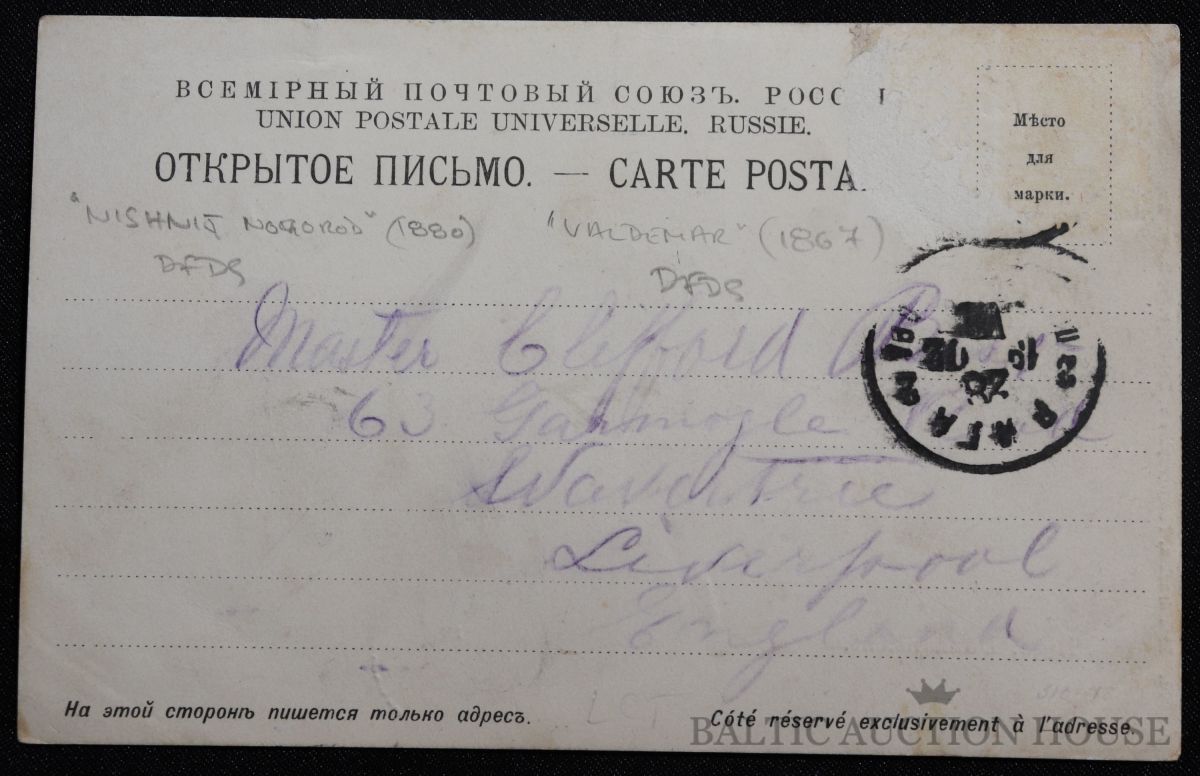 ВСЕМІРНЫЙ ПОЧТОВЫЙ СОЮЗЪ. РОСС
UNION POSTALE UNIVERSELLE. RUSSIE.
ОТКРЫТОЕ ПИСЬМО. — CARTE POSTA
Мѣсто
для
марки.
"NISHNIJ NOVGOROD" (1880) "VALDEMAR" (1867)
DFDS DFDS
Master Clifford
63
Wavertree
Liverpool
England
На этой сторонѣ пишется только адресъ.
Côté réservé exclusivement à l'adresse.
BALTIC AUCTION HOUSE